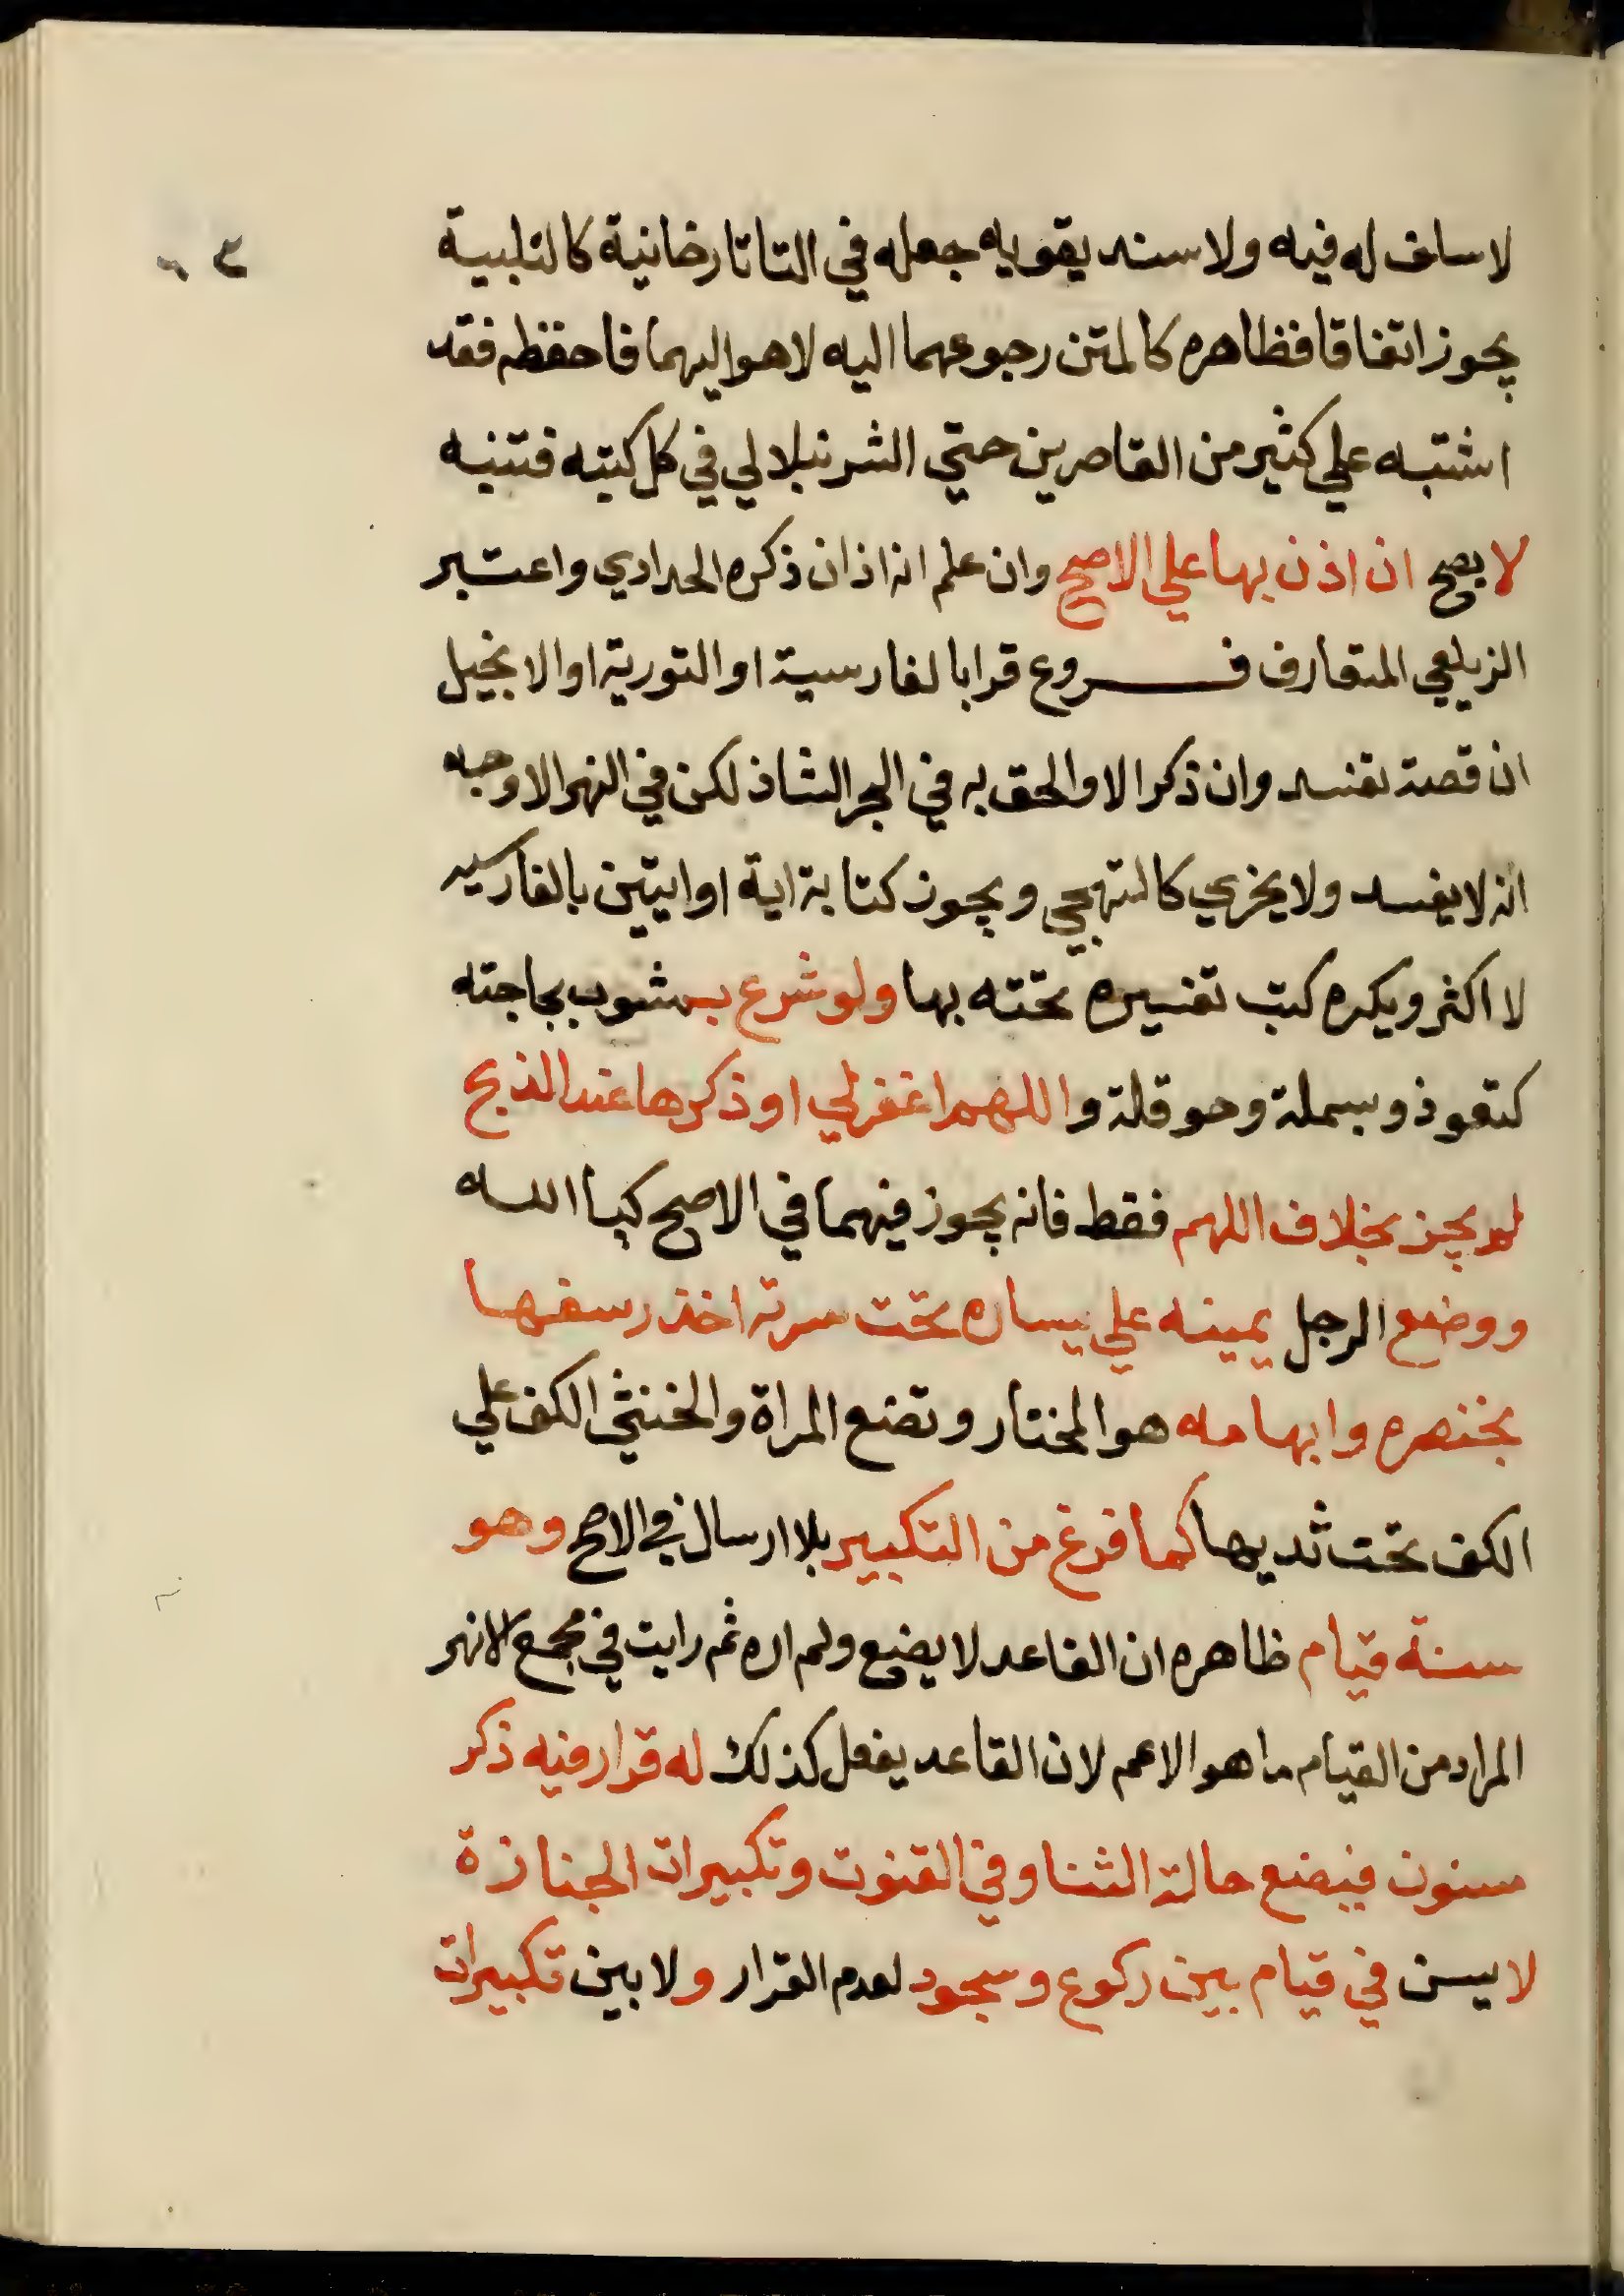 لا سلف له فيه ولا سند يقويه جعله في التاتارخانية كالتلبية
يجوز اتفاقا فظاهره كالمتن رجوعهما اليه لا هو اليهما فاحفظه فقد
اشتبه علي كثير من القاصرين حتي الشرنبلالي في كل كتبه فتنبه
لا يصح ان اذن بها علي الاصح وان علم انه اذان ذكره الحدادي واعتبر
الزيلعي المتعارف فروع قرا بالفارسية او التورية او الانجيل
ان قصة تفسد وان ذكرا لا والحق به في البحر الشاذ لكن في النهر الاوجه
انه لا يفسد ولا يجزي كالتهجي ويجوز كتابة اية او ايتين بالفارسيه
لا اكثر ويكره كتب تفسيره تحته بها ولو شرع بمشوب بحاجته
كتعوذ وبسملة وحوقلة واللهم اغفر لي او ذكرها عند الذبح
لم يجز بخلاف اللهم فقط فانه يجوز فيهما في الاصح كيا الله
ووضع الرجل يمينه علي يساره تحت سرته اخذ رسغها
بخنصره وابهامه هو المختار وتضع المراة والخنثي الكف علي
الكف تحت ثديها كما فرغ من التكبير بلا ارسال في الاصح وهو
سنة قيام ظاهره ان القاعد لا يضع ولم اره ثم رايت في مجمع الانهر
المراد من القيام ما هو الاعم لان القاعد يفعل كذلك له قرار فيه ذكر
مسنون فيضع حالة الثنا وفي القنوت وتكبيرات الجنازة
لا يسن في قيام بين ركوع وسجود لعدم القرار ولا بين تكبيرات